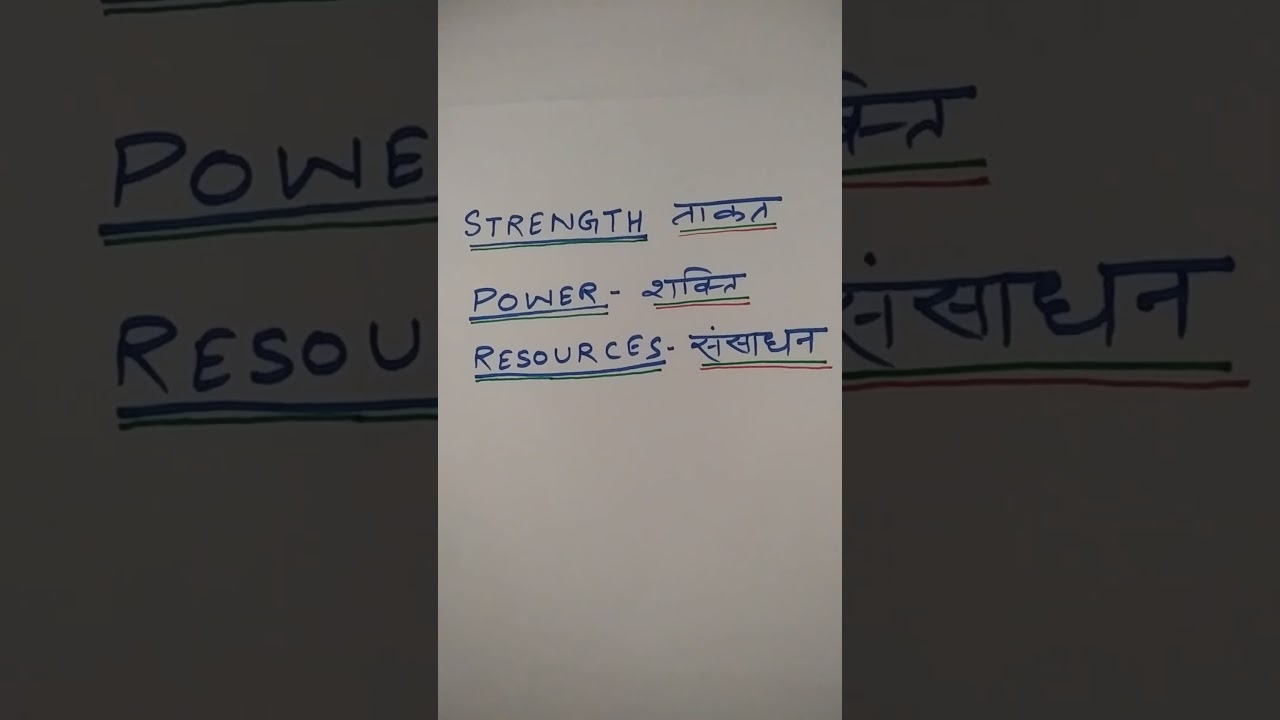 STRENGTH ताकत
POWER - शक्ति
RESOURCES - संसाधन